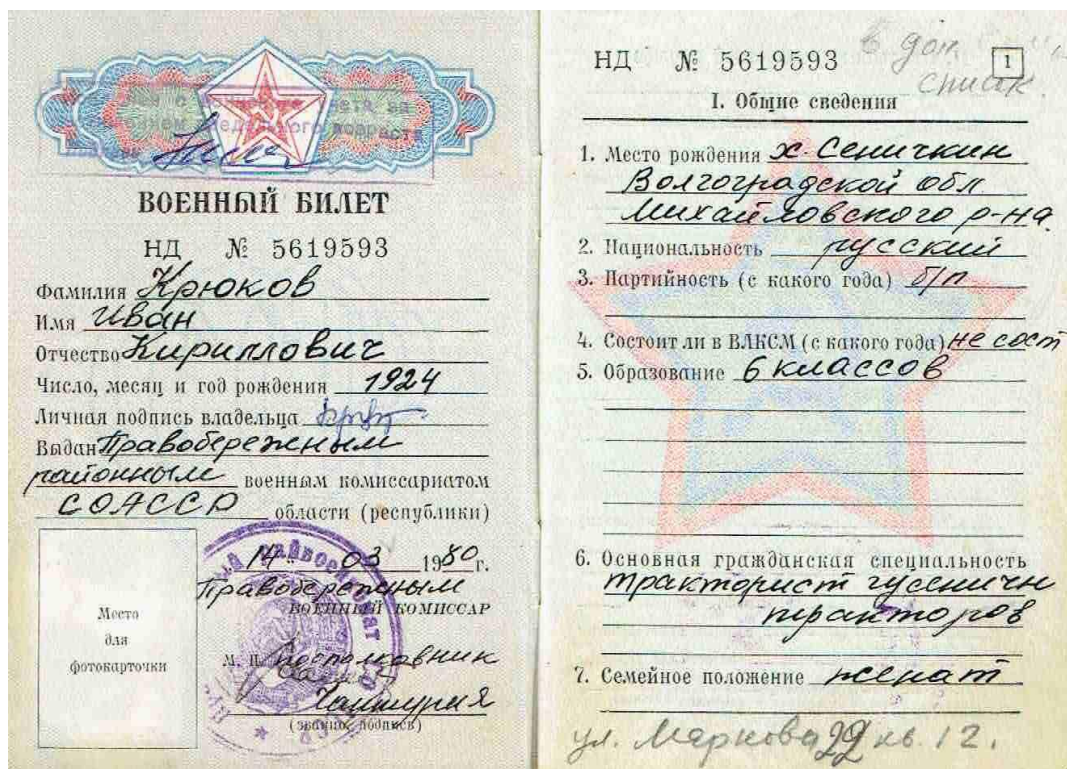 ВОЕННЫЙ БИЛЕТ
НД № 5619593
Фамилия Крюков
Имя Иван
Отчество Кириллович
Число, месяц и год рождения 1924
Личная подпись владельца
Выдан Правобережным
районным военным комиссариатом
СОАССР области (республики)
14 03 1980 г.
Правобережным
ВОЕННЫЙ КОМИССАР
Место
для
фотокарточки
М. П. подполковник
(звание, подпись)
НД № 5619593
в доп.
список
1
I. Общие сведения
1. Место рождения х. Сеничкин
Волгоградской обл.
Михайловского р-на.
2. Национальность русский
3. Партийность (с какого года) б/п
4. Состоит ли в ВЛКСМ (с какого года) не сост
5. Образование 6 классов
6. Основная гражданская специальность
тракторист гусеничн
тракторов
7. Семейное положение женат
ул. Маркова 22 кв. 12.